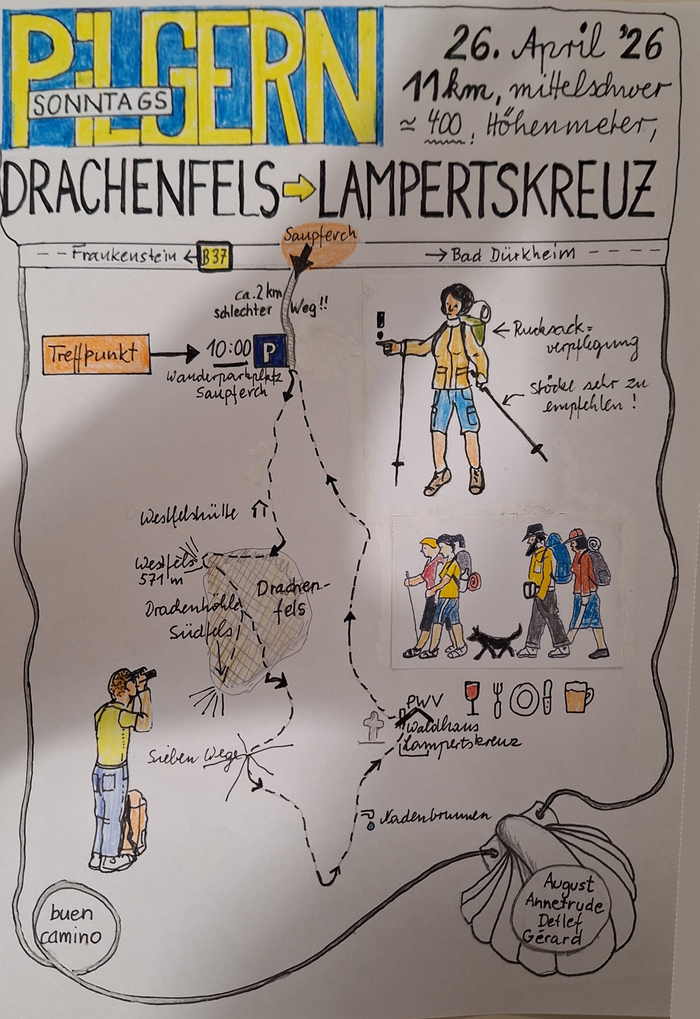 PILGERN
SONNTAGS
26. April '26
11km, mittelschwer
≈ 400 Höhenmeter,
DRACHENFELS → LAMPERTSKREUZ
Saupferch
-- Frankenstein ← B37
→ Bad Dürkheim ----
ca. 2 km
schlechter Weg!!
Treffpunkt
10:00 P
Wanderparkplatz
Saupferch
!
← Rucksack=
verpflegung
Stöcke sehr zu
empfehlen!
Westfelshütte
Westfels
571 m
Drachen-
fels
Drachenhöhle
Südfels
PWV
Waldhaus
Lampertskreuz
Sieben Wege
Nadenbrunnen
buen
camino
August
Annetrude
Detlef
Gérard